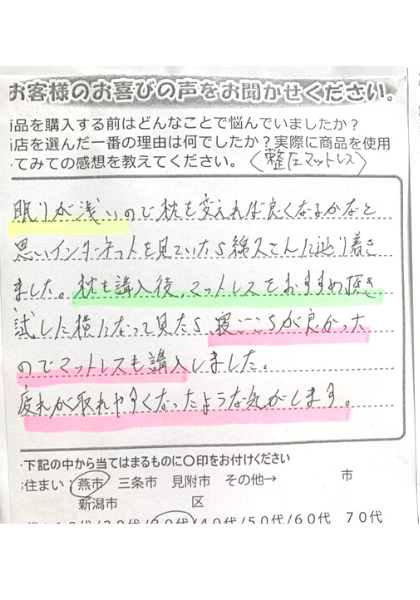 お客様のお喜びの声をお聞かせください。
品を購入する前はどんなことで悩んでいましたか？
店を選んだ一番の理由は何でしたか？実際に商品を使用
てみての感想を教えてください。〈整圧マットレス〉
眠りが浅いので枕を変えれば良くなるかなと
思いインターネットを見ていたら綿久さんに辿り着き
ました。枕も購入後、マットレスをおすすめ頂き
試した横になって見たら寝ごこちが良かった
のでマットレスも購入しました。
疲れが取れやすくなったような気がします。
下記の中から当てはまるものに○印をお付けください
住まい：燕市 三条市 見附市 その他→ 市
新潟市 区
10代/20代/30代/40代/50代/60代 70代